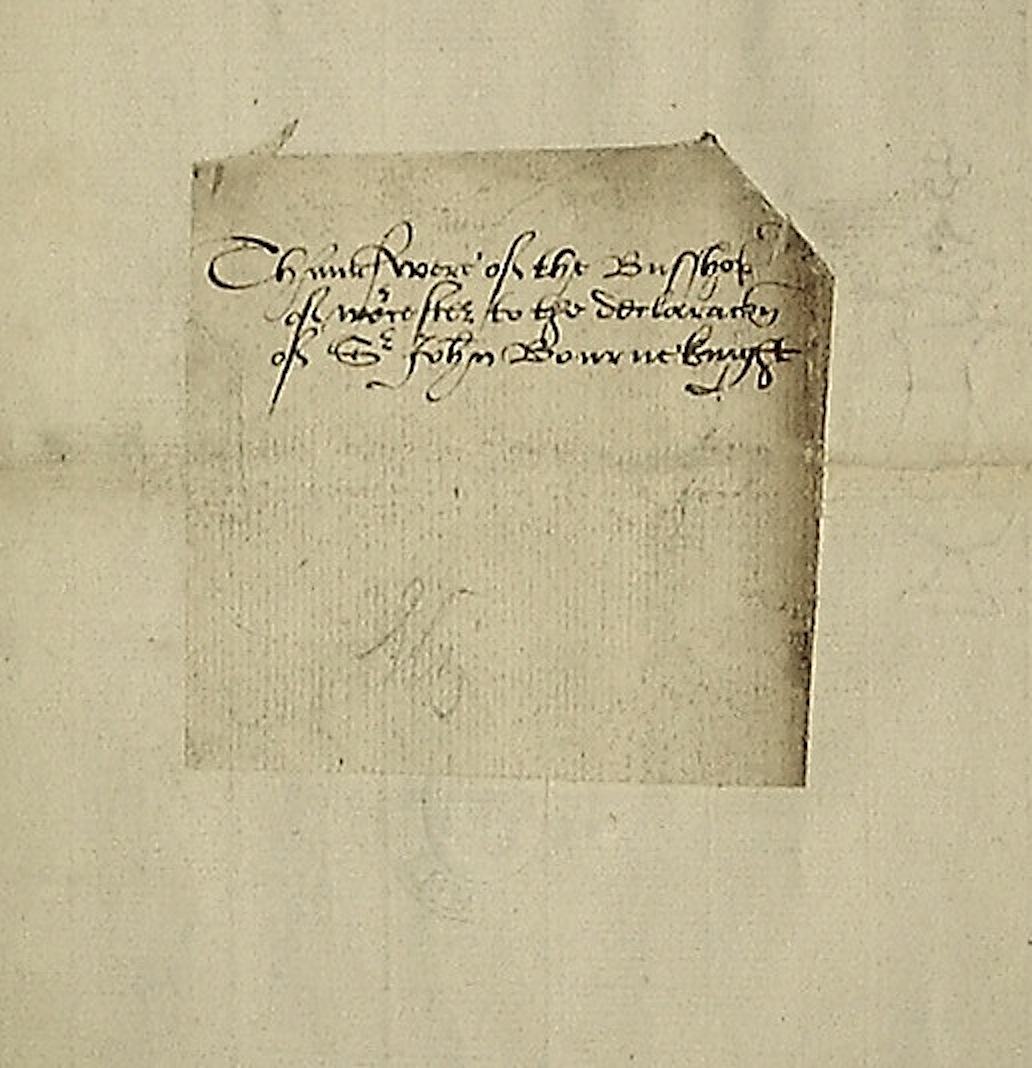 Thaunsswere of the Busshop
of worcester to the declaracon
of Sr John Bourne knyght